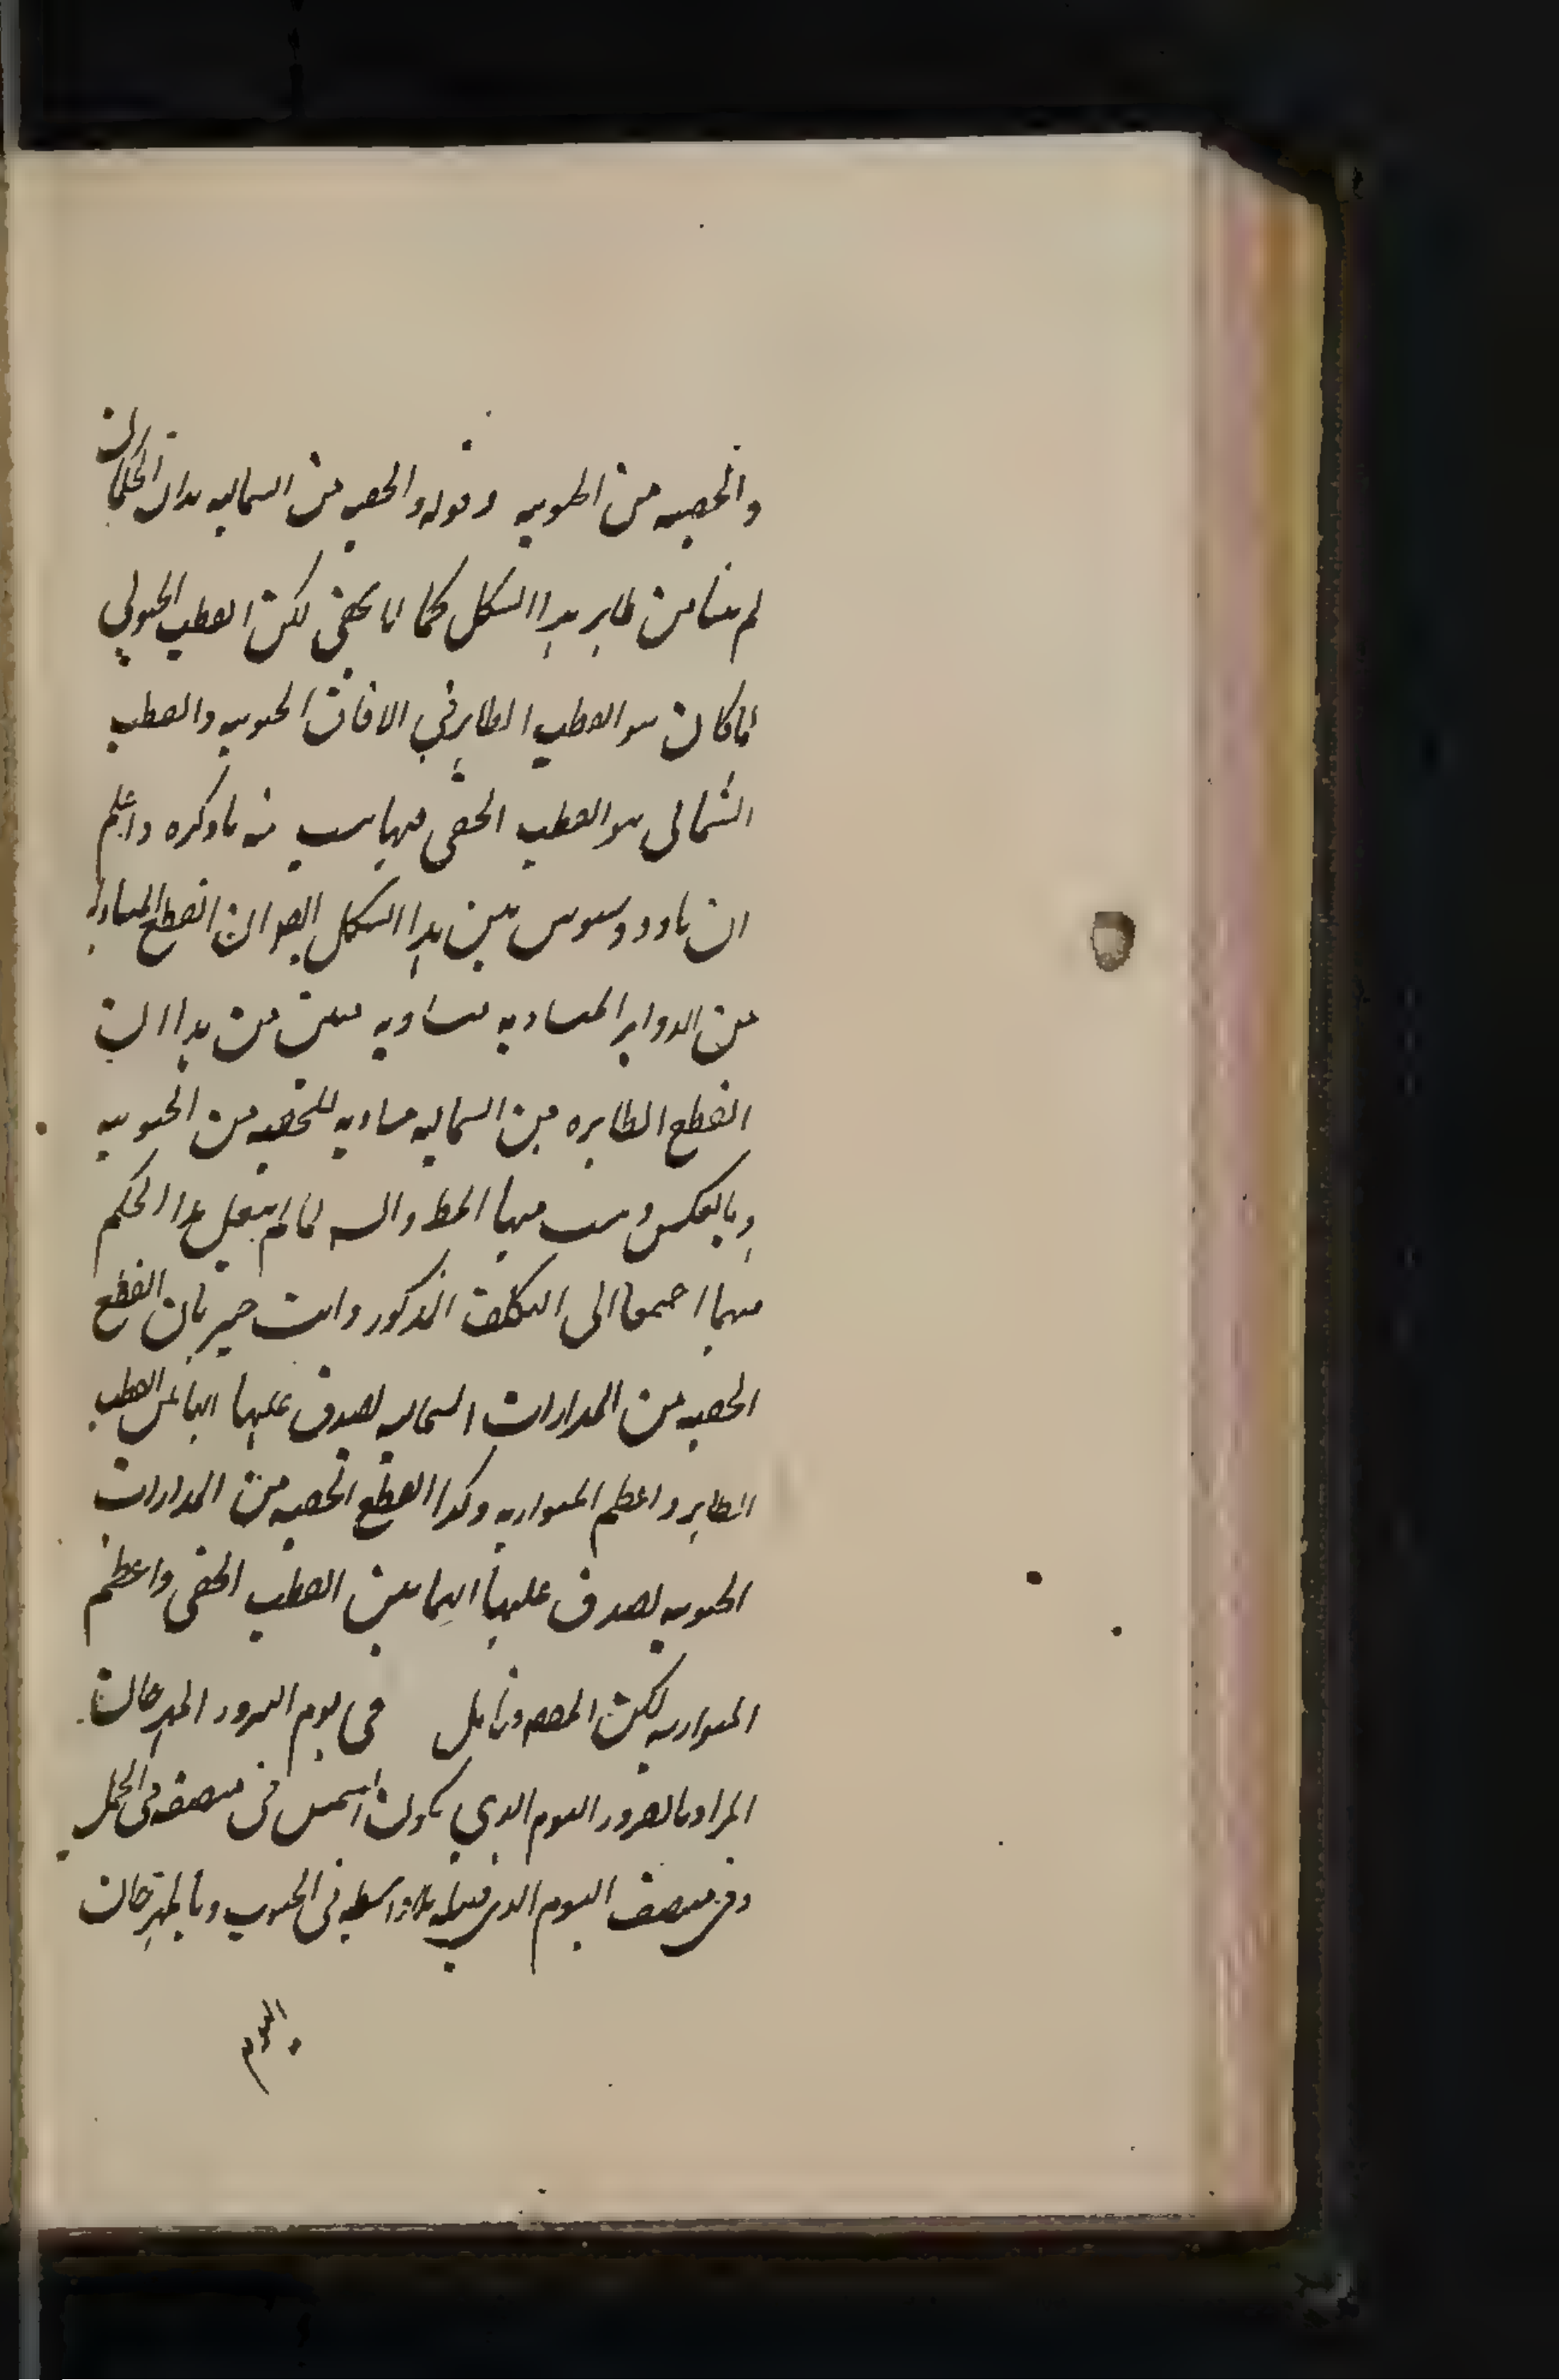 والخفيه من الجنوبيه وقوله والخفيه من الشماليه هذان الحكمان
لم يبينا من ظاهر هذا الشكل كما لا يخفى لكن القطب الجنوبي
لما كان هو القطب الظاهر في الافاق الجنوبيه والقطب
الشمالي هو القطب الخفي فيها يتبين منه ما ذكره واعلم
ان ثاودوسيوس بين هذا الشكل ايضا ان القطع المتبادله
من الدواير المتساويه متساويه فبين من هذا ان
القطع الظاهره من الشماليه مساويه للخفيه من الجنوبيه
وبالعكس لما لم ينقل هذا الحكم
منهما احتجنا الى التكلف المذكور وانت خبير بان القطع
الخفيه من المدارات الشماليه يصدق عليها انها بين القطب
الظاهر واعظم المتوازيه وكذا القطع الخفيه من المدارات
الجنوبيه يصدق عليها انها بين القطب الخفي واعظم
المتوازيه لكن في يوم النيروز المهرجان
المراد بالنيروز اليوم الذي يكون الشمس في منتصفه في الحمل
وفي منتصف اليوم الذي قبله بلا واسطه في الحوت وبالمهرجان
اليوم